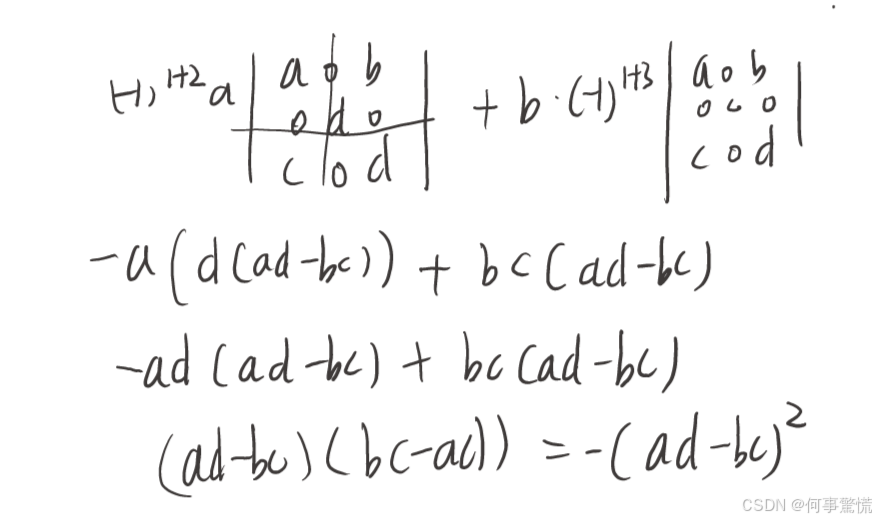 (-1)^{1+2} a | a 0 b | + b·(-1)^{1+3} | a 0 b |
| 0 d 0 | | 0 c 0 |
| c 0 d | | c 0 d |
-a(d(ad-bc)) + bc(ad-bc)
-ad(ad-bc) + bc(ad-bc)
(ad-bc)(bc-ad) = -(ad-bc)^2
CSDN @何事驚慌